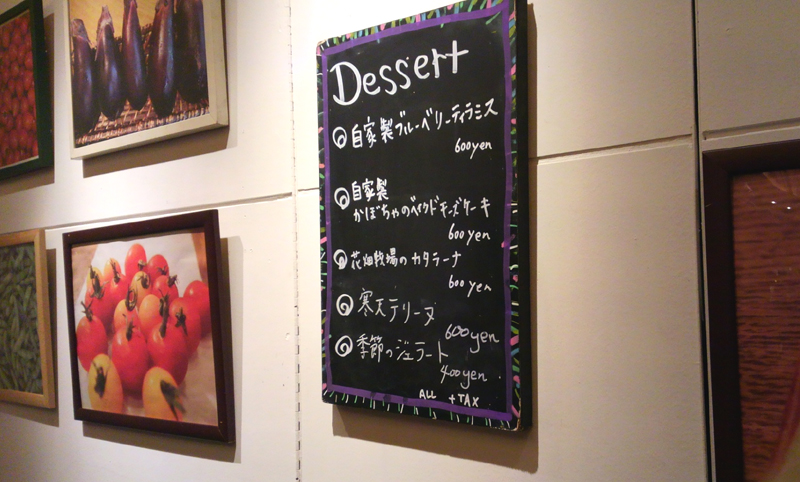 Dessert
自家製ブルーベリーティラミス
600yen
自家製
かぼちゃのベイクドチーズケーキ
600yen
花畑牧場のカタラーナ
600yen
寒天テリーヌ
600yen
季節のジェラート
400yen
ALL +TAX